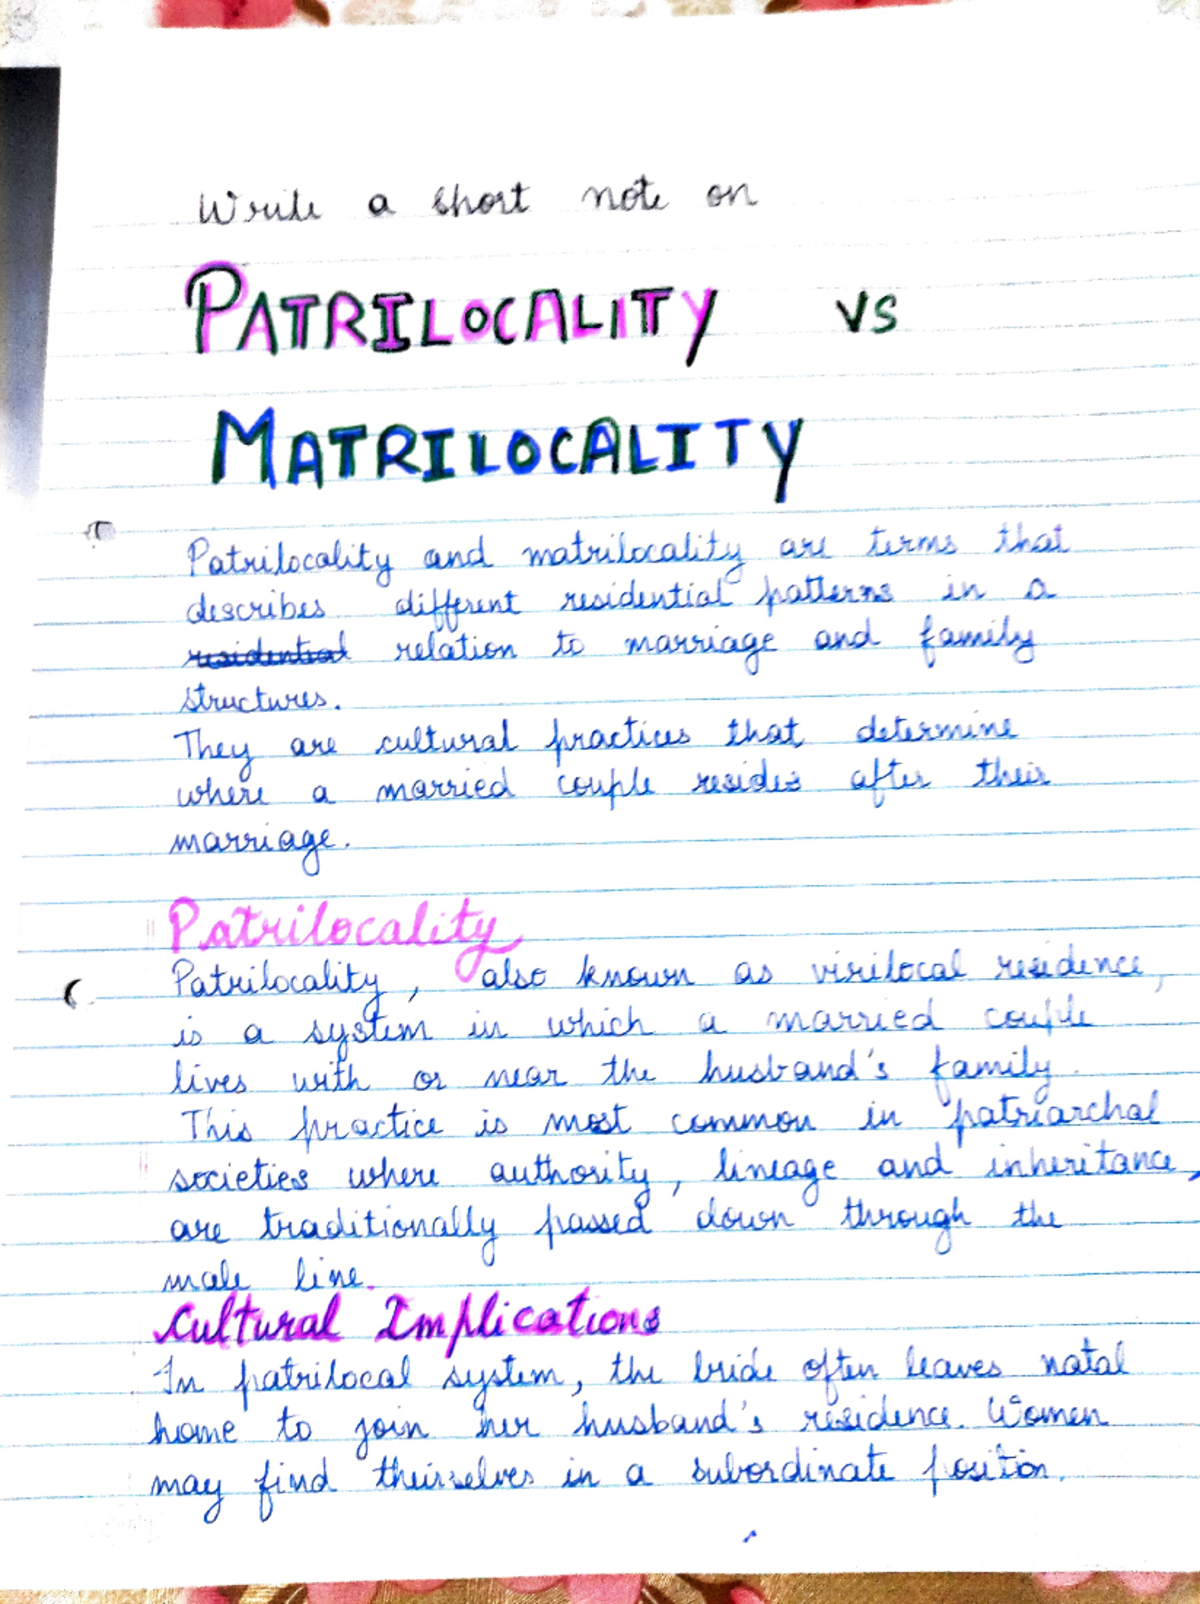 Write a short note on
PATRILOCALITY VS
MATRILOCALITY
Patrilocality and matrilocality are terms that
describes different residential patterns in a
residential relation to marriage and family
structures.
They are cultural practices that determine
where a married couple resides after their
marriage.
Patrilocality
Patrilocality, also known as virilocal residence,
is a system in which a married couple
lives with or near the husband's family.
This practice is most common in patriarchal
societies where authority, lineage and inheritance,
are traditionally passed down through the
male line.
Cultural Implications
In patrilocal system, the bride often leaves natal
home to join her husband's residence. Women
may find theirselves in a subordinate position.